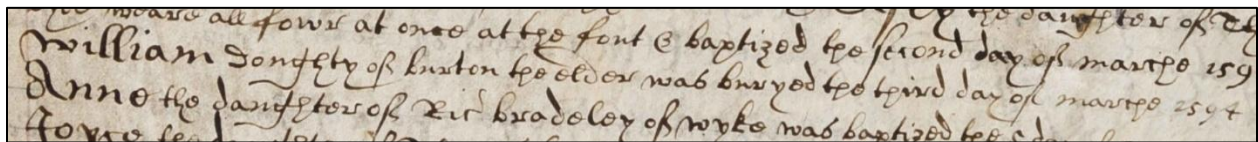 weare all fowr at once at the font & baptized the second day of marche 159
the daughter of
William Doughty of burton the elder was buryed the third day of marche 1594
Anne the daughter of Ric bradeley of wyke was baptized the
Joyce the